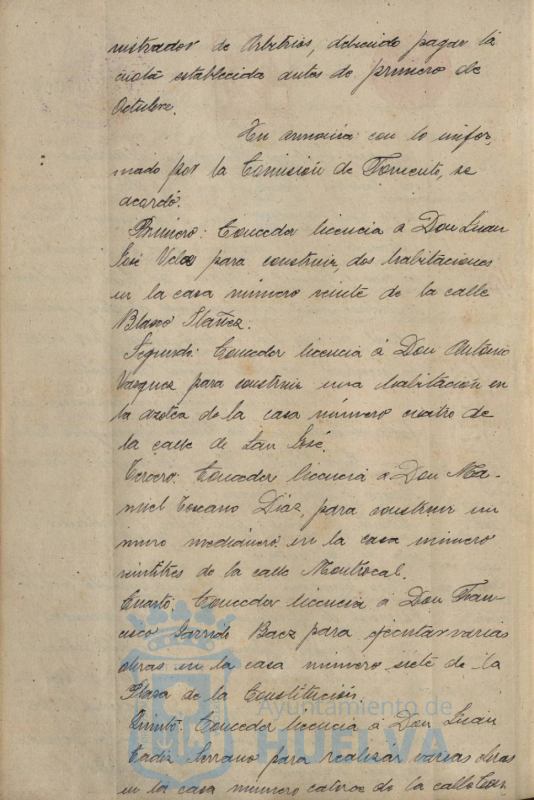 nistrador de Arbitrios, debiendo pagar la
cuota establecida antes de primero de
Octubre.
En armonia con lo infor-
mado por la Comisión de Fomento, se
acordó.
Primero: Conceder licencia á Don Juan
José Velez para construir, dos habitaciones
en la casa número veinte de la calle
Blasco Ibañez.
Segundo: Conceder licencia á Don Antonio
Vazquez para construir una habitación en
la azotea de la casa número cuatro de
la calle de San José.
Tercero: Conceder licencia á Don Ma-
nuel Toscano Díaz, para construir un
muro medianero en la casa número
veintitres de la calle Montrocal.
Cuarto: Conceder licencia á Don Fran-
cisco Garrido Baez para ejecutar varias
obras en la casa número siete de la
Plaza de la Constitución.
Quinto: Conceder licencia á Don Juan
Cadiz Serrano para realizar varias obras
en la casa número catorce de la calle
Ayuntamiento de
HUELVA